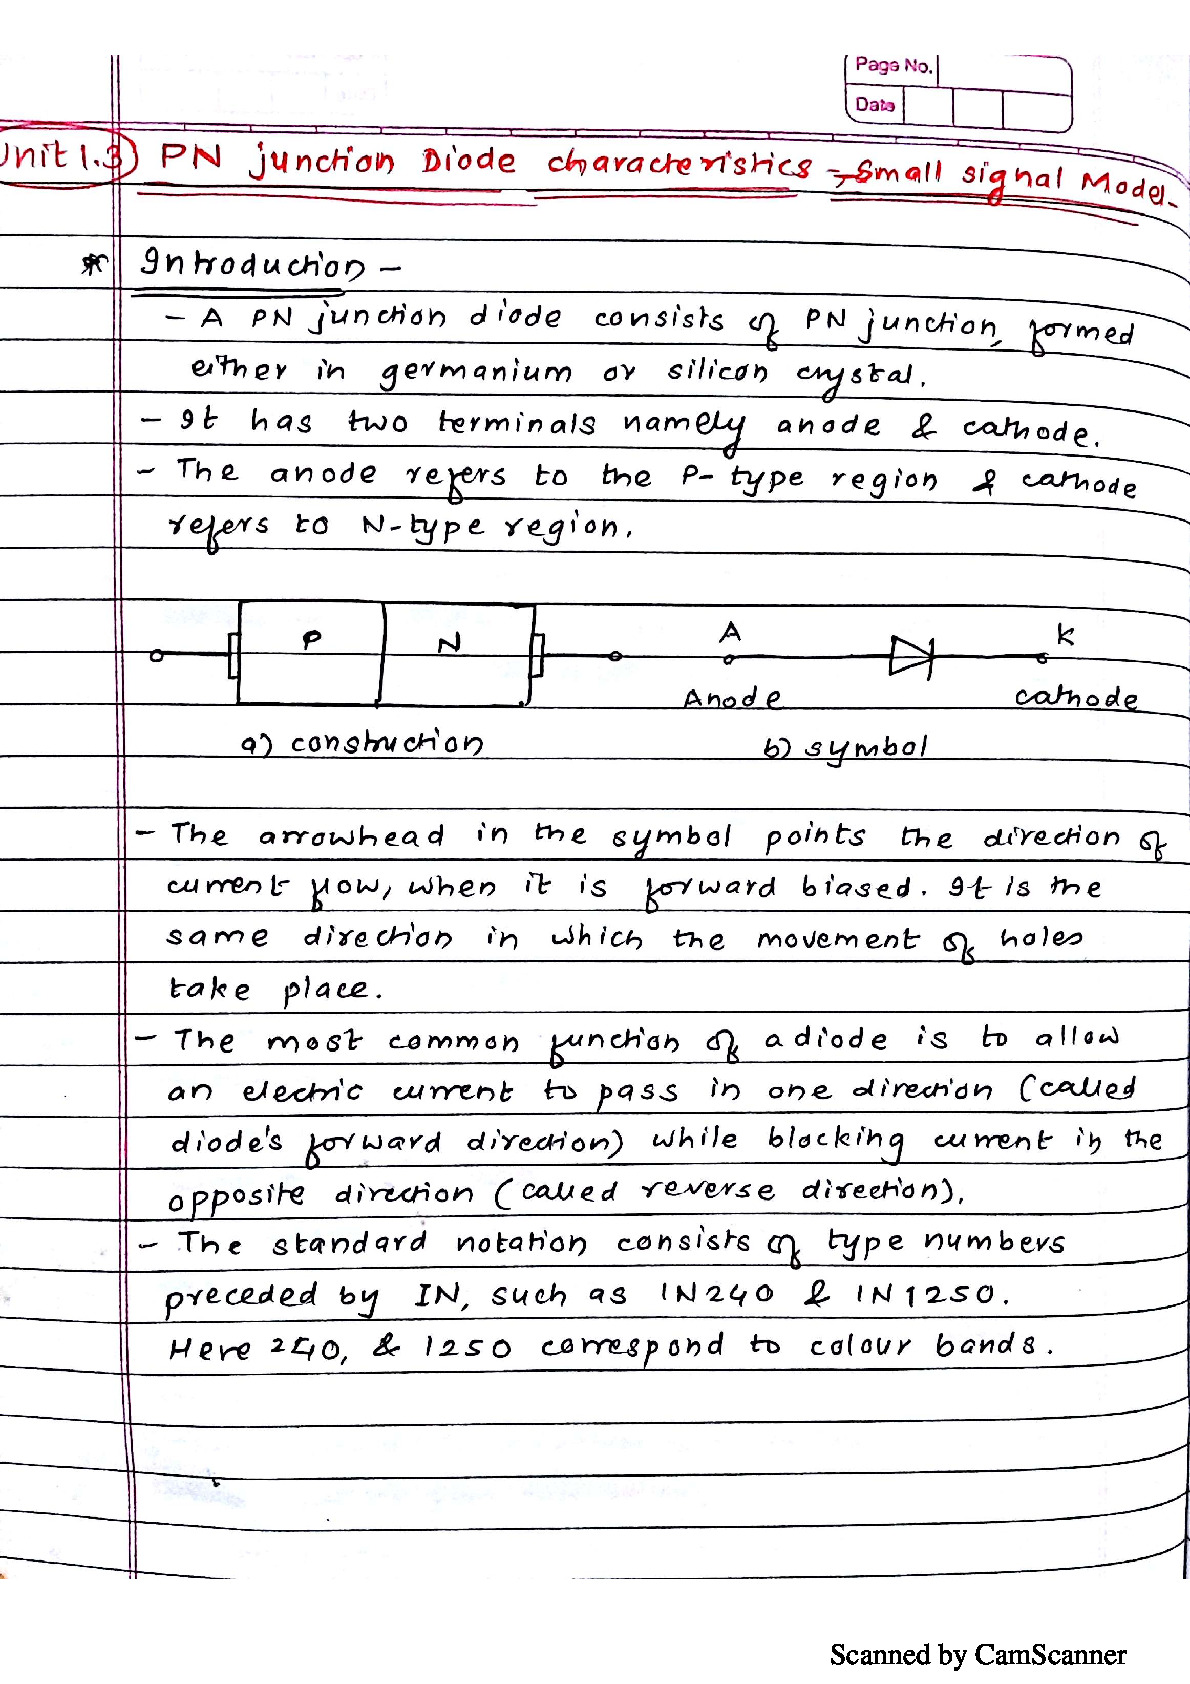 Page No.
Date
Unit 1.3) PN junction Diode characteristics - Small signal Model -
* Introduction -
- A PN junction diode consists of PN junction, formed
either in germanium or silicon crystal.
- It has two terminals namely anode & cathode.
- The anode refers to the P-type region & cathode
refers to N-type region.
P N A K
Anode cathode
a) construction b) symbol
- The arrowhead in the symbol points the direction of
current flow, when it is forward biased. It is the
same direction in which the movement of holes
take place.
- The most common function of a diode is to allow
an electric current to pass in one direction (called
diode's forward direction) while blocking current in the
opposite direction (called reverse direction),
- The standard notation consists of type numbers
preceded by IN, such as 1N240 & 1N1250.
Here 240, & 1250 correspond to colour bands.
Scanned by CamScanner